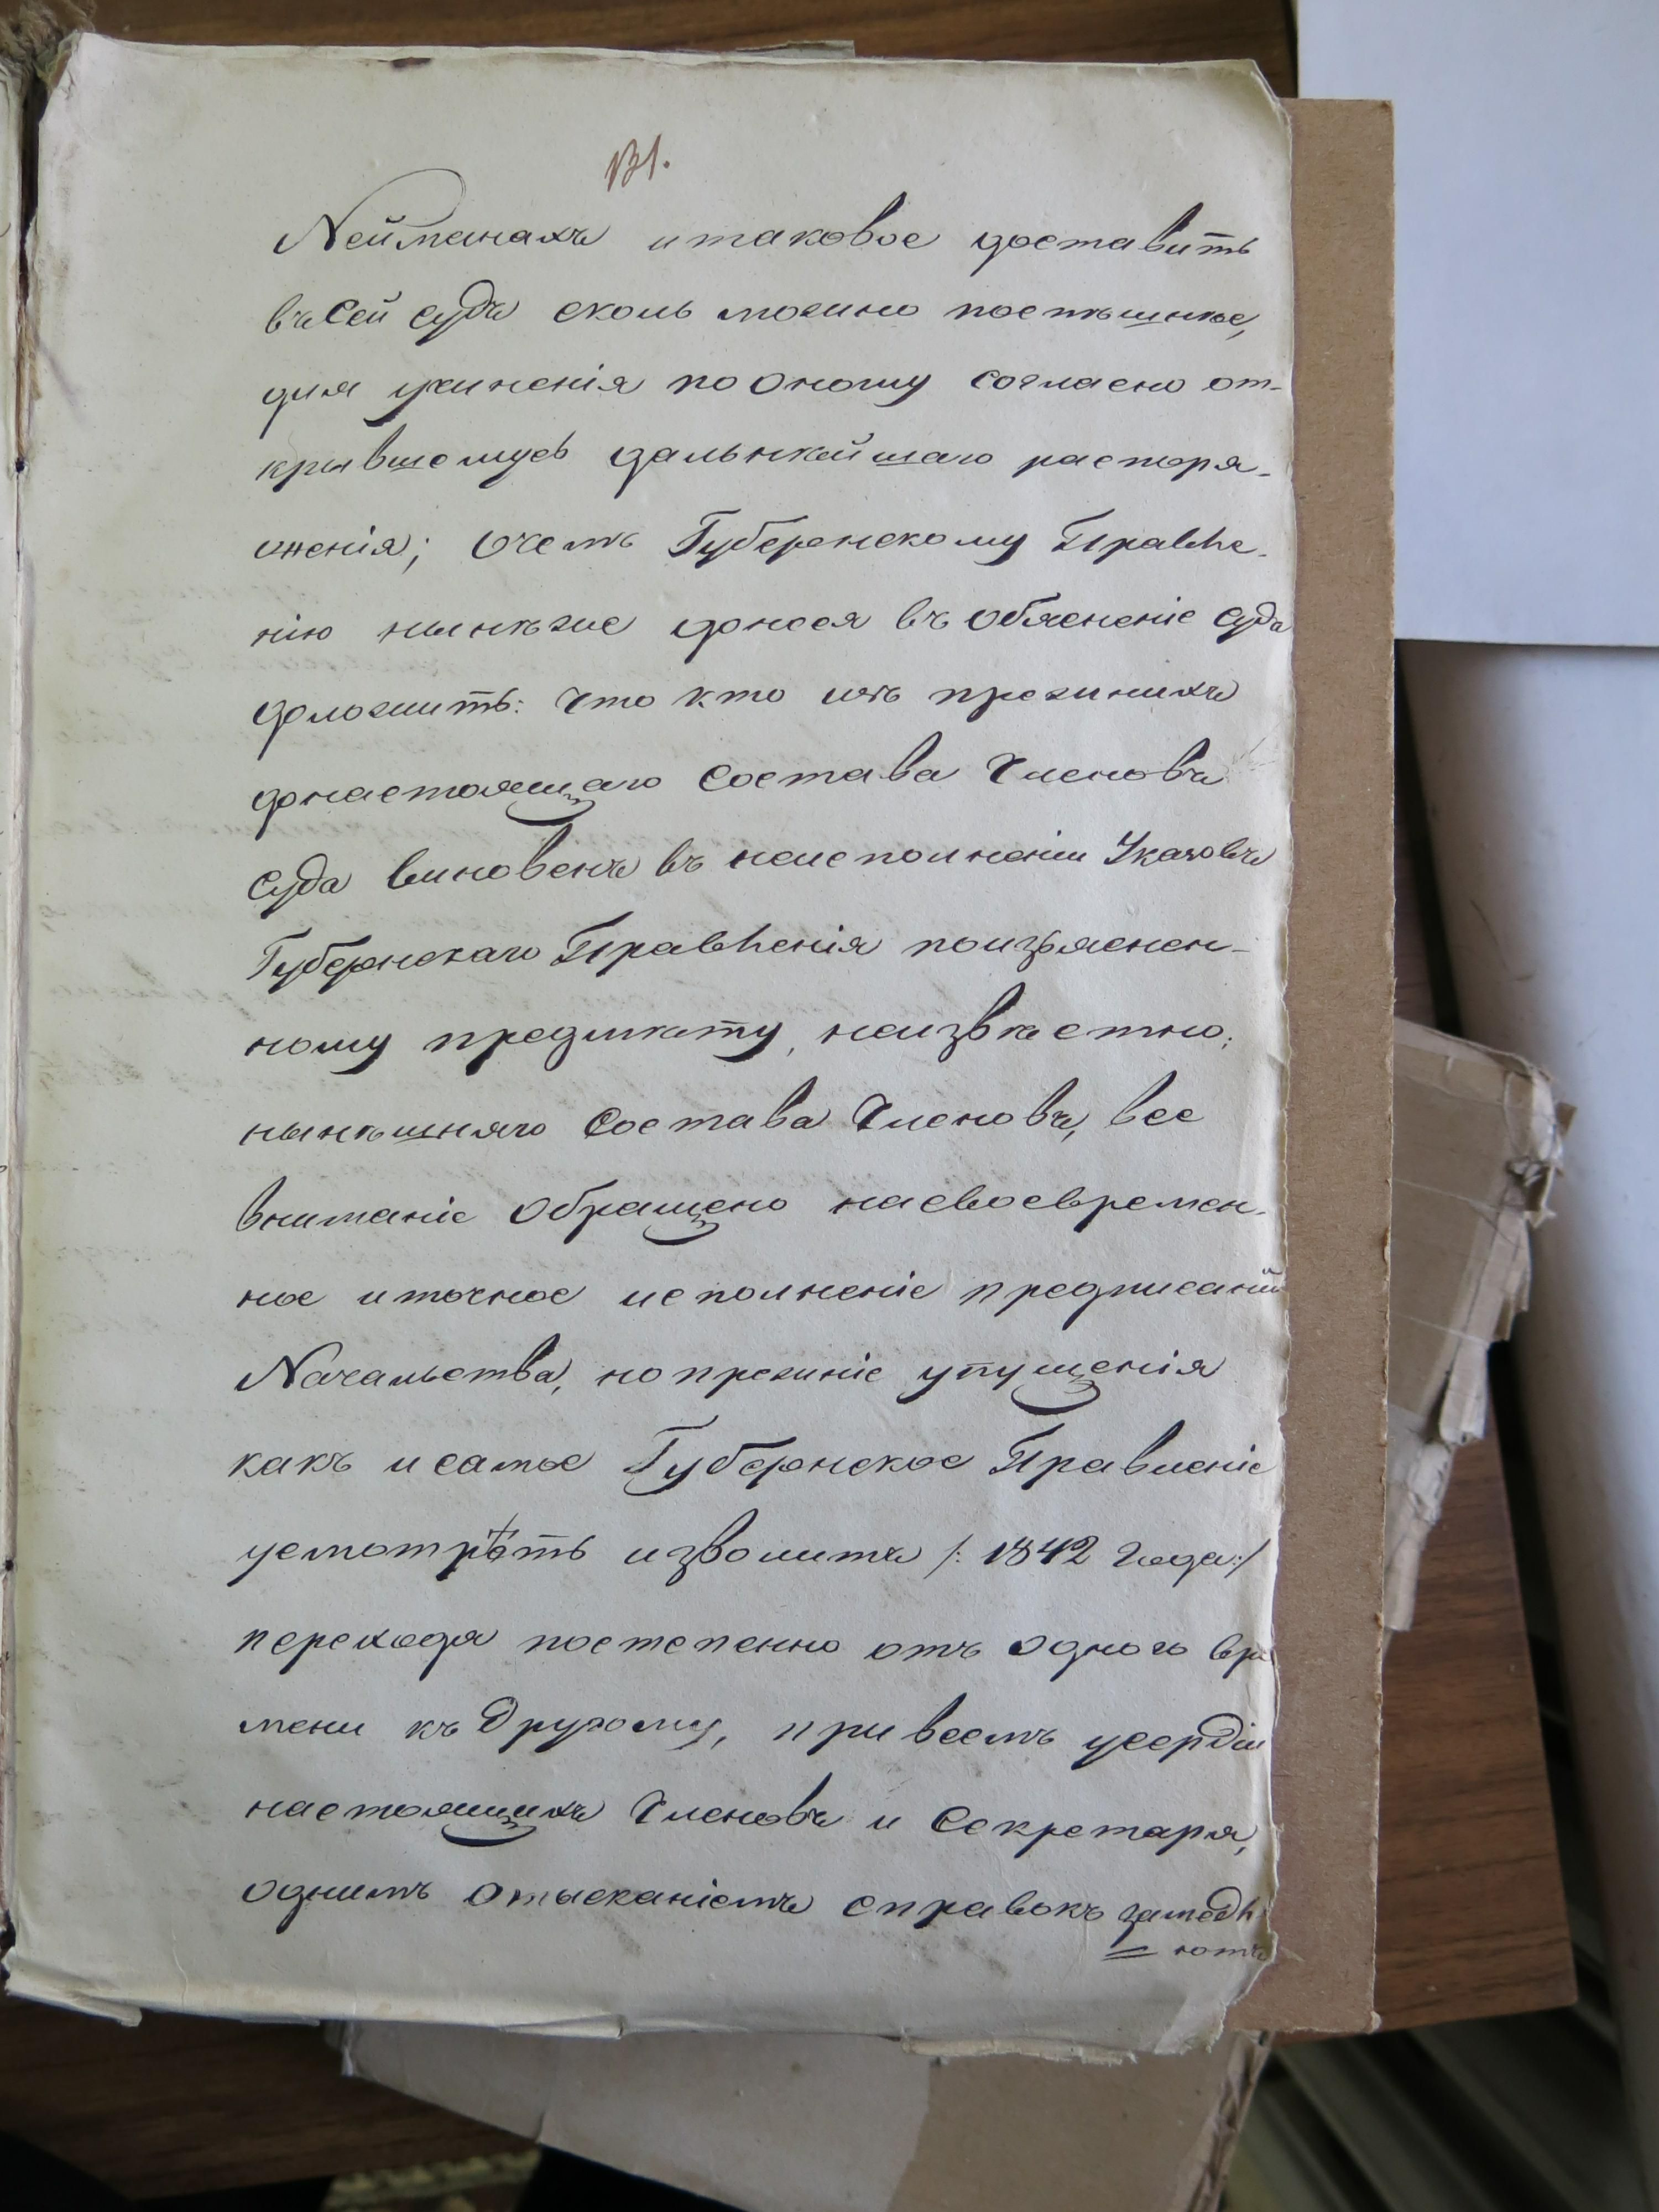 131.
Нейманахъ итаковое доставить
въ Сей Судъ сколь можно поспѣшнѣе,
для учиненія по оному согласно от-
крывшемусь дальнѣйшаго распоря-
женія; Очемъ Губернскому Правле-
нію нынѣже донося въ обясненіе Суда
доложить: что кто изъ прежнихъ
донастоящаго Состава Членовъ
Суда виновенъ въ неисполненіи Указовъ
Губернскаго Правленія поизъяснен-
ному предмѣту, неизвѣстно;
нынѣшняго Состава Членовъ, все
вниманіе обращено насвоевремен-
ное иточное исполненіе предписаній
Начальства, но прежніе упущенія
какъ исамое Губернское Правленіе
усмотрѣть изволитъ /: 1842 года :/
переходя постепенно отъ одного вре
мени къ другому, при всемъ усердіи
настоящихъ Членовъ и Секретаря,
однимъ отысканіемъ справокъ замедл
= ютъ